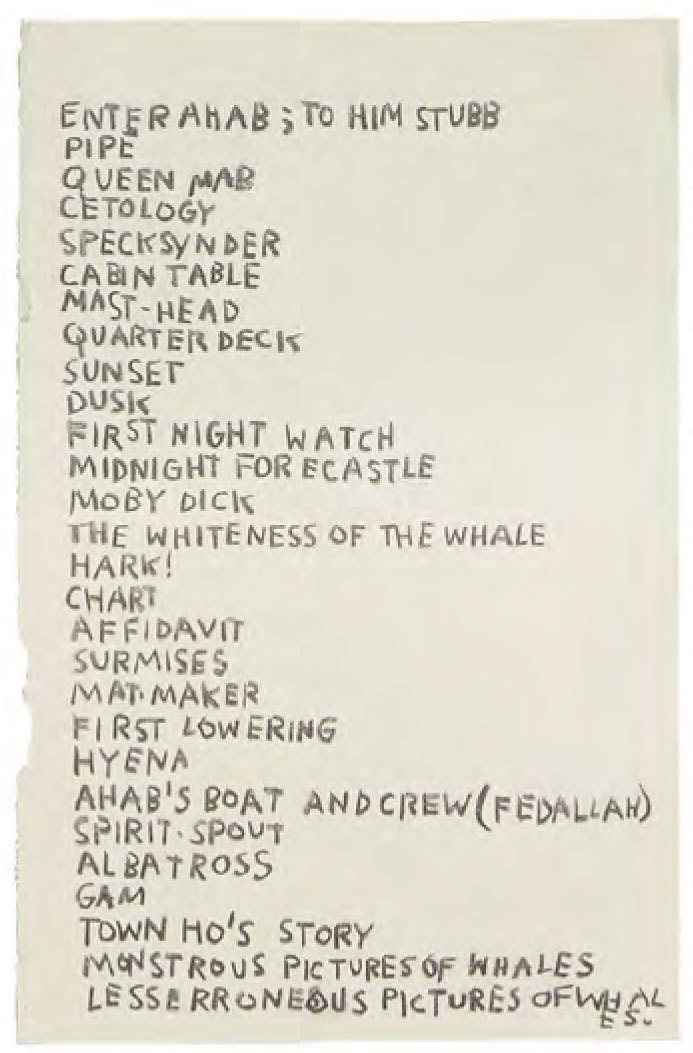 ENTER AHAB ; TO HIM STUBB
PIPE
QUEEN MAB
CETOLOGY
SPECKSYNDER
CABIN TABLE
MAST-HEAD
QUARTER DECK
SUNSET
DUSK
FIRST NIGHT WATCH
MIDNIGHT FORECASTLE
MOBY DICK
THE WHITENESS OF THE WHALE
HARK!
CHART
AFFIDAVIT
SURMISES
MAT-MAKER
FIRST LOWERING
HYENA
AHAB'S BOAT AND CREW (FEDALLAH)
SPIRIT-SPOUT
ALBATROSS
GAM
TOWN HO'S STORY
MONSTROUS PICTURES OF WHALES
LESS ERRONEOUS PICTURES OF WHAL
ES.